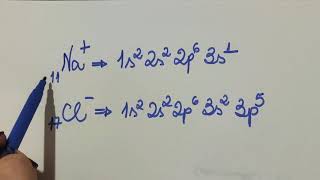 ₁₁Na⁺ ⇒ 1s² 2s² 2p⁶ 3s¹
₁₇Cl⁻ ⇒ 1s² 2s² 2p⁶ 3s² 3p⁵